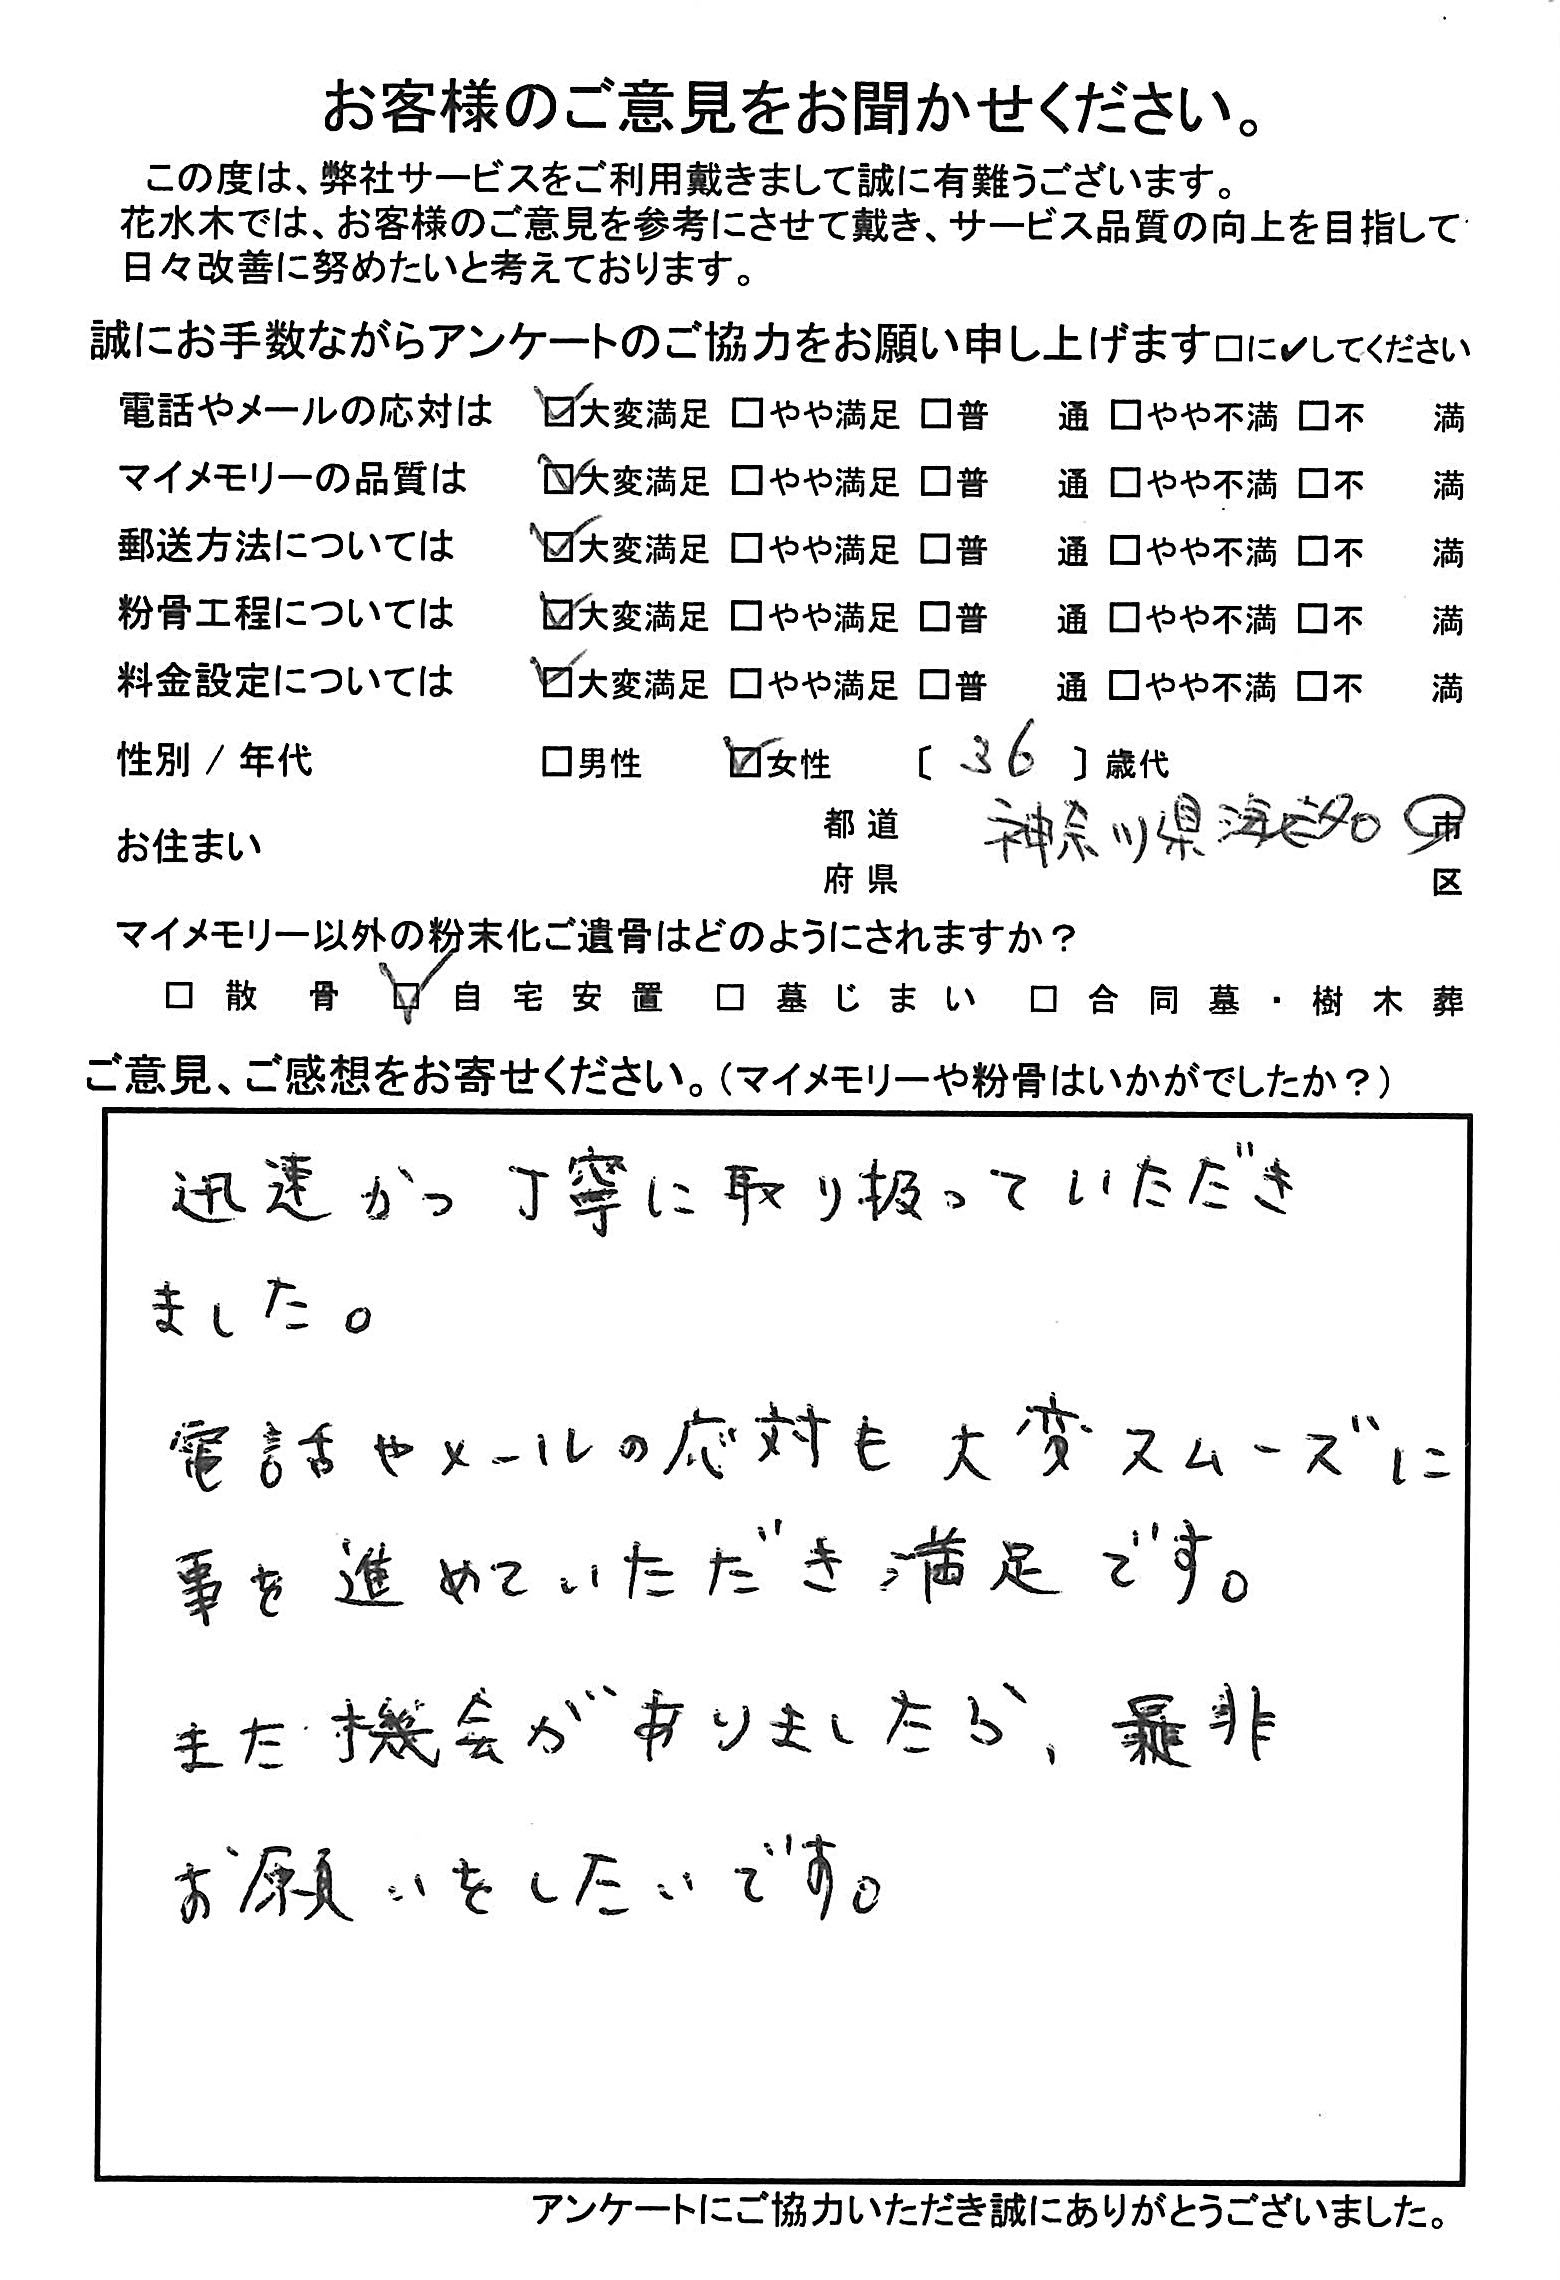 お客様のご意見をお聞かせください。
この度は、弊社サービスをご利用戴きまして誠に有難うございます。
花水木では、お客様のご意見を参考にさせて戴き、サービス品質の向上を目指して
日々改善に努めたいと考えております。
誠にお手数ながらアンケートのご協力をお願い申し上げます□に✔してください
電話やメールの応対は ☑大変満足 □やや満足 □普 通 □やや不満 □不 満
マイメモリーの品質は ☑大変満足 □やや満足 □普 通 □やや不満 □不 満
郵送方法については ☑大変満足 □やや満足 □普 通 □やや不満 □不 満
粉骨工程については ☑大変満足 □やや満足 □普 通 □やや不満 □不 満
料金設定については ☑大変満足 □やや満足 □普 通 □やや不満 □不 満
性別 / 年代 □男性 ☑女性 〔 36 〕歳代
お住まい 都道府県 神奈川県海老名 市区
マイメモリー以外の粉末化ご遺骨はどのようにされますか?
□ 散骨 ☑ 自宅安置 □ 墓じまい □ 合同墓・樹木葬
ご意見、ご感想をお寄せください。(マイメモリーや粉骨はいかがでしたか?)
迅速かつ丁寧に取り扱っていただき
ました。
電話やメールの応対も大変スムーズに
事を進めていただき満足です。
また機会がありましたら、是非
お願いをしたいです。
アンケートにご協力いただき誠にありがとうございました。